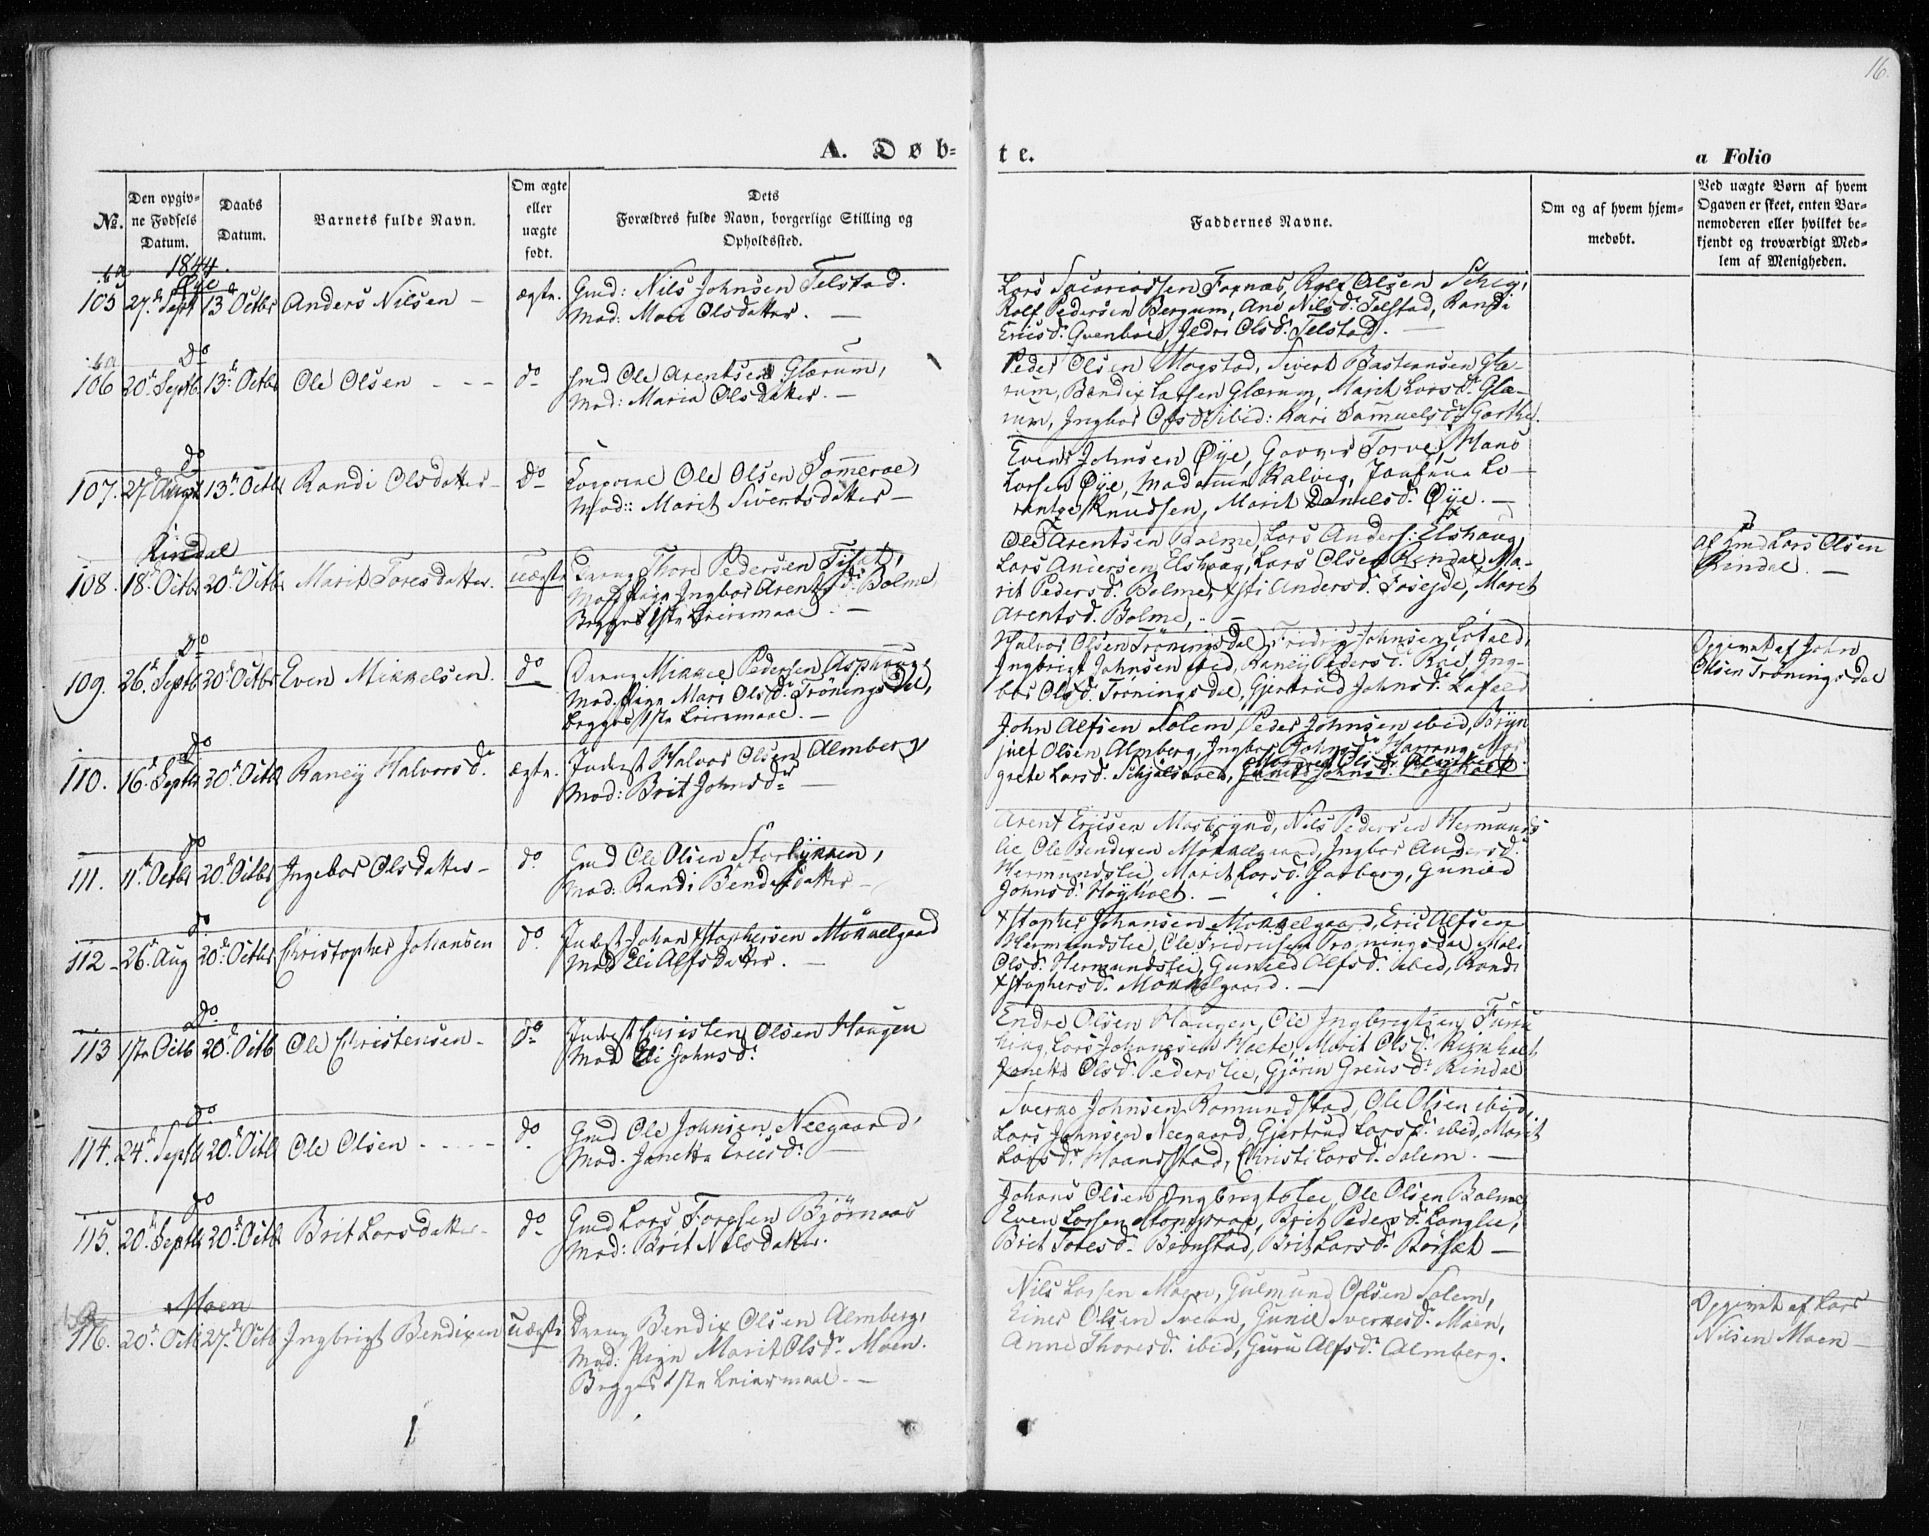 16.
A. Døb-
te.
a Folio
No.
Den opgiv-
ne Fødsels
Datum.
Daabs
Datum.
Barnets fulde Navn.
Om ægte
eller
uægte
født.
Dets
Forældres fulde Navn, borgerlige Stilling og
Opholdssted.
Faddernes Navne.
Om og af hvem hjem-
medøbt.
Ved uægte Børn af hvem
Opgaven er skeet, enten Bar-
nemoderen eller hvilket be-
kjendt og troværdigt Med-
lem af Menigheden.
1844.
Øye
105 27de Sept 13de Octbr Anders Nilsen — ægte. Gmd: Nils Johnsen Telstad.
Mod: Mari Olsdatter. —
Lars Olsen
Rolf Pedersen Bergum, Ane Nilsd. Telstad, Randi
Ericsd. Olsd. Telstad. —
Do
106 20de Septb. 13de Octbr Ole Olsen - - - do Gmd Ole Arentsen Glærum,
Mod: Maria Olsdatter. —
Peder Olsen Mogstad, Sivert Bastiansen Glæ-
rum, Bendix Larsen Glærum, Marit Larsd. Glæ-
rum, Ingbor Olsd. ibid: Kari Samuelsd.
Do
107. 27de Augst 13de Octbr Randi Olsdatter — Do Corporal Ole Olsen Someroe,
Mod: Marit Sivertsdatter —
Even Johnsen Øye, Hans
Larsen Øye, Madamme Kalveg, Jomfrue Lo-
rentze Knudsen, Marit Danielsd. Øye. —
Rindal
108. 18de Octbr 20de Octbr Marit Toresdatter. uægte Dreng Thore Pedersen Tiset,
Mod. Pige Ingbor Arentsd. Bolme
Begges 1ste Leiermaal —
Ole Arentsen Bolme, Lars Anders: Elshaug,
Lars Andersen Elshaug, Lars Olsen Rindal, Ma-
rit Pedersd. Bolme, Xsti Andersd. Marit
Arentsd. Bolme, —
af Gmd Lars Olsen
Rindal. —
Do
109. 26de Septb 20de Octbr Even Mikkelsen. do Dreng Mikkel Pedersen Asphaug,
Mod. Pige Mari Olsd. Trøningsdal,
begges 1ste Leiermaal. —
Halvor Olsen Trøningsdal, Fredrig Johnsen
Ingbrigt Johnsen ibid, Raneij Pedersd. Ing-
bor Olsd. Trøningsdal, Gjertrud Johnsd.
Opgivet af John
Olsen Trøningsdal
do
110. 16de Septb 20de Octbr Raneij Halvorsd. ægte. Inderst Halvor Olsen Almberg,
Mod: Brit Johnsd. —
John Alfsen Solem, Peder Johnsen ibid, Bryn
julf Olsen Almberg, Ingbor Johnsd. Harrang, Mar
grete Larsd. Gunild Johnsd. Høyholt
do
111. 11te Octbr 20de Octbr Ingebor Olsdatter — do. Gmd Ole Olsen Storlykken,
Mod: Randi Bendixdatter —
Arent Ericsen Nils Pedersen Hermunds
lie, Ole Bendixen Mokkelgaard, Ingbor Andersd.
Hermundslie, Marit Larsd. Gunild
Johnsd. Høyholt. —
do.
112 — 26de Aug 20de Octbr Christopher Johansen do. Inderst Johan Xstophersen Mokkelgaard
Mod Eli Alfsdatter. —
Xstopher Johansen Mokkelgaard, Eric Alfsen
Hermundslie, Ole Fridricsen Troningsdal, Mali
Olsd. Hermundslie, Gunild Alfsd. ibid, Randi
Xstophersd. Mokkelgaard. —
Do.
113 1ste Octb 20de Octb Ole Christensen — do Inderst Christen Olsen Haugen
Mod Eli Johnsd.
Endre Olsen Haugen, Ole Ingbrigtsen Furu
haug, Lars Johansen Marit Olsd.
Janetta Olsd. Pederslie, Gjørin Rindal
do.
114. 24de Septb 20de Octb Ole Olsen - - - - do Gmd Ole Johnsen Neegaard,
Mod. Janetta Ericsd: —
Sverke Johnsen Romundstad, Ole Olsen ibid,
Lars Johnsen Neegaard, Gjertrud Larsd. ibid, Marit
Larsd. Haandstad, Christi Larsd. Solem. —
do
115. 20de Septb 20de Octb Brit Larsdatter — do Gmd Lars Toresen Bjørnaas
Mod: Brit Nilsdatter.
Johans Olsen Ingbrigtslie, Ole Olsen Bolme
Even Larsen Brit Pedersd. Langlie,
Brit Toresd. Bjørnstad, Brit Larsd. Børset —
Moen
116. 20de Octb 27de Octb Ingbrigt Bendixen uægte Dreng Bendix Olsen Almberg,
Mod: Pige Marit Olsd. Moen.
Begges 1ste Leiermaal. —
Nils Larsen Moen, Gulmund Olsen Solem,
Einer Olsen Svean, Gunil Sverkesd. Moen,
Anne Thoresd. ibid, Guru Alfsd. Almberg.
Opgivet af Lars
Nilsen Moen —